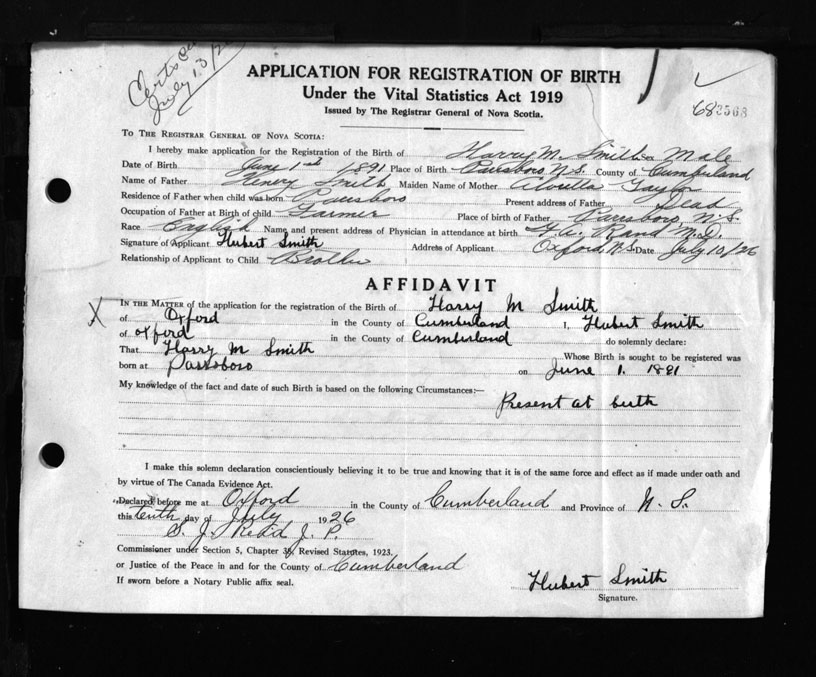 July 13/26
APPLICATION FOR REGISTRATION OF BIRTH
Under the Vital Statistics Act 1919
Issued by The Registrar General of Nova Scotia.
683568
TO THE REGISTRAR GENERAL OF NOVA SCOTIA:
I hereby make application for the Registration of the Birth of Harry M. Smith Male
Date of Birth June 1st 1891 Place of Birth Parrsboro, N.S. County of Cumberland
Name of Father Henry Smith Maiden Name of Mother Taylor
Residence of Father when child was born Parrsboro Present address of Father Dead
Occupation of Father at Birth of child Farmer Place of birth of Father Parrsboro, N.S.
Race English Name and present address of Physician in attendance at birth Rand M.D.
Signature of Applicant Hubert Smith Address of Applicant Oxford, N.S. Date July 10/26
Relationship of Applicant to Child Brother
AFFIDAVIT
X IN THE MATTER of the application for the registration of the Birth of Harry M Smith
of Oxford in the County of Cumberland I, Hubert Smith
of oxford in the County of Cumberland do solemnly declare:
That Harry M Smith Whose Birth is sought to be registered was
born at Parrsboro on June 1. 1891
My knowledge of the fact and date of such Birth is based on the following Circumstances:—
Present at birth
I make this solemn declaration conscientiously believing it to be true and knowing that it is of the same force and effect as if made under oath and
by virtue of The Canada Evidence Act.
Declared before me at Oxford in the County of Cumberland and Province of N. S.
this tenth day of July 1926
S. J. J. P.
Commissioner under Section 5, Chapter 38, Revised Statutes, 1923.
or Justice of the Peace in and for the County of Cumberland
If sworn before a Notary Public affix seal.
Hubert Smith
Signature.